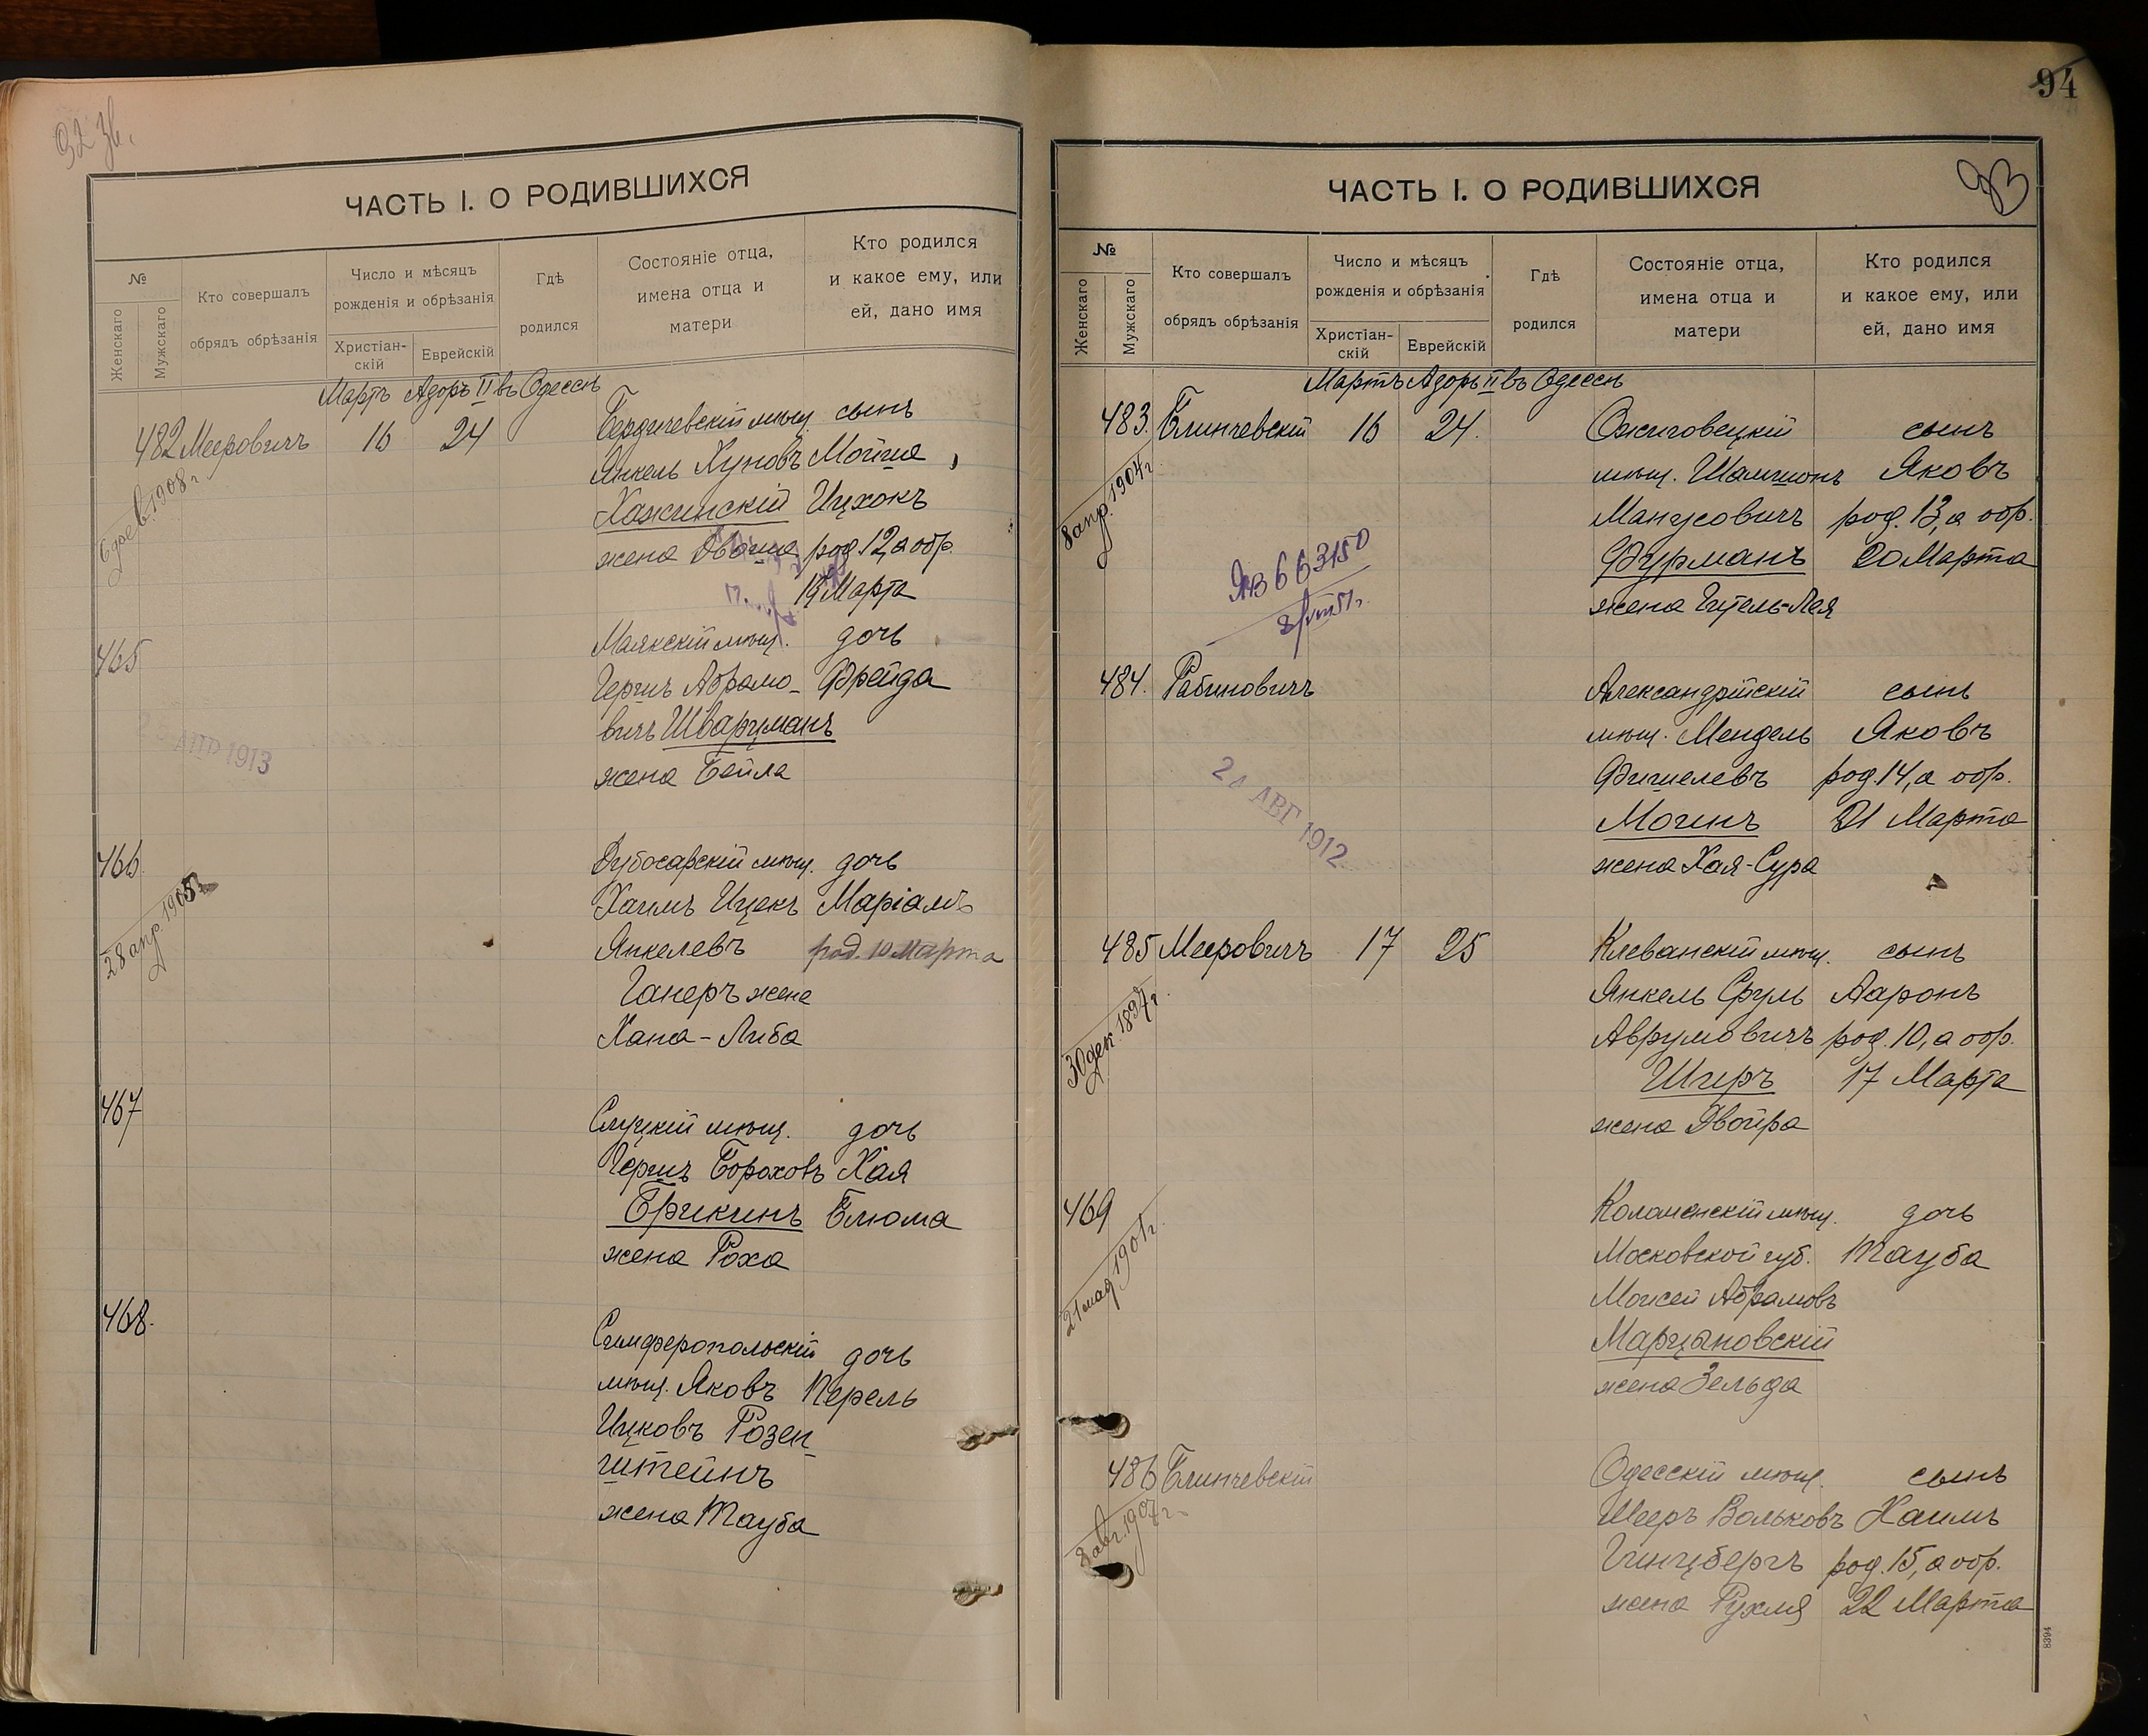 94
ЧАСТЬ I. О РОДИВШИХСЯ
№
Женскаго
Мужскаго
Кто совершалъ
обрядъ обрѣзанія
Число и мѣсяцъ
рожденія и обрѣзанія
Христіан-
скій
Еврейскій
Гдѣ
родился
Состояніе отца,
имена отца и
матери
Кто родился
и какое ему, или
ей, дано имя
Мартъ Адоръ II въ Одессѣ
482 Мееровичъ 16 24 Бердичевскій мѣщ. сынъ
Янкель Хуновъ Мойше
Хажинскій Ицхокъ
жена Двойша род. 12, а обр.
19 Марта
6 фев. 1908 г.
465 Маякскій мѣщ. дочь
Гершъ Абрамо- Фрейда
вичъ Шварцманъ
жена Бейла
АПР 1913
466 Дубосарскій мѣщ. дочь
Хаимъ Ицекъ Маріамъ
Янкелевъ род. 10 Марта
Ганеръ жена
Хана-Либа
28 апр. 1905
467 Слуцкій мѣщ. дочь
Гершъ Бороховъ Хая
Брикинъ Блюма
жена Роха
468. Симферопольскій дочь
мѣщ. Яковъ Перель
Ицковъ Розен-
штейнъ
жена Тауба
ЧАСТЬ I. О РОДИВШИХСЯ
93
№
Женскаго
Мужскаго
Кто совершалъ
обрядъ обрѣзанія
Число и мѣсяцъ
рожденія и обрѣзанія
Христіан-
скій
Еврейскій
Гдѣ
родился
Состояніе отца,
имена отца и
матери
Кто родился
и какое ему, или
ей, дано имя
Мартъ Адоръ II въ Одессѣ
483. Блинчевскій 16 24. Ожиговецкій сынъ
мѣщ. Шамшонъ Яковъ
Манусовичъ род. 13, а обр.
Фурманъ 20 Марта
жена Гитель-Лея
8 апр. 1904 г.
663150
484. Рабиновичъ Александрійскій сынъ
мѣщ. Мендель Яковъ
Фишелевъ род. 14, а обр.
Могинъ 21 Марта
жена Хая-Сура
24 АВГ 1912
485 Мееровичъ 17 25 Клеванскій мѣщ. сынъ
Янкель Сруль Ааронъ
Аврумовичъ род. 10, а обр.
Шгеръ 17 Марта
жена Двойра
30 дек. 1897 г.
469 Коломенскій мѣщ. дочь
Московской губ. Тауба
Моисей Абрамовъ
Марцановскій
жена Зельда
21 мая 1901 г.
486 Блинчевскій Одесскій мѣщ. сынъ
Шееръ Вольковъ Хаимъ
Гинцбергъ род. 15, а обр.
жена Рухля 22 Марта
8 авг. 1907 г.
8394